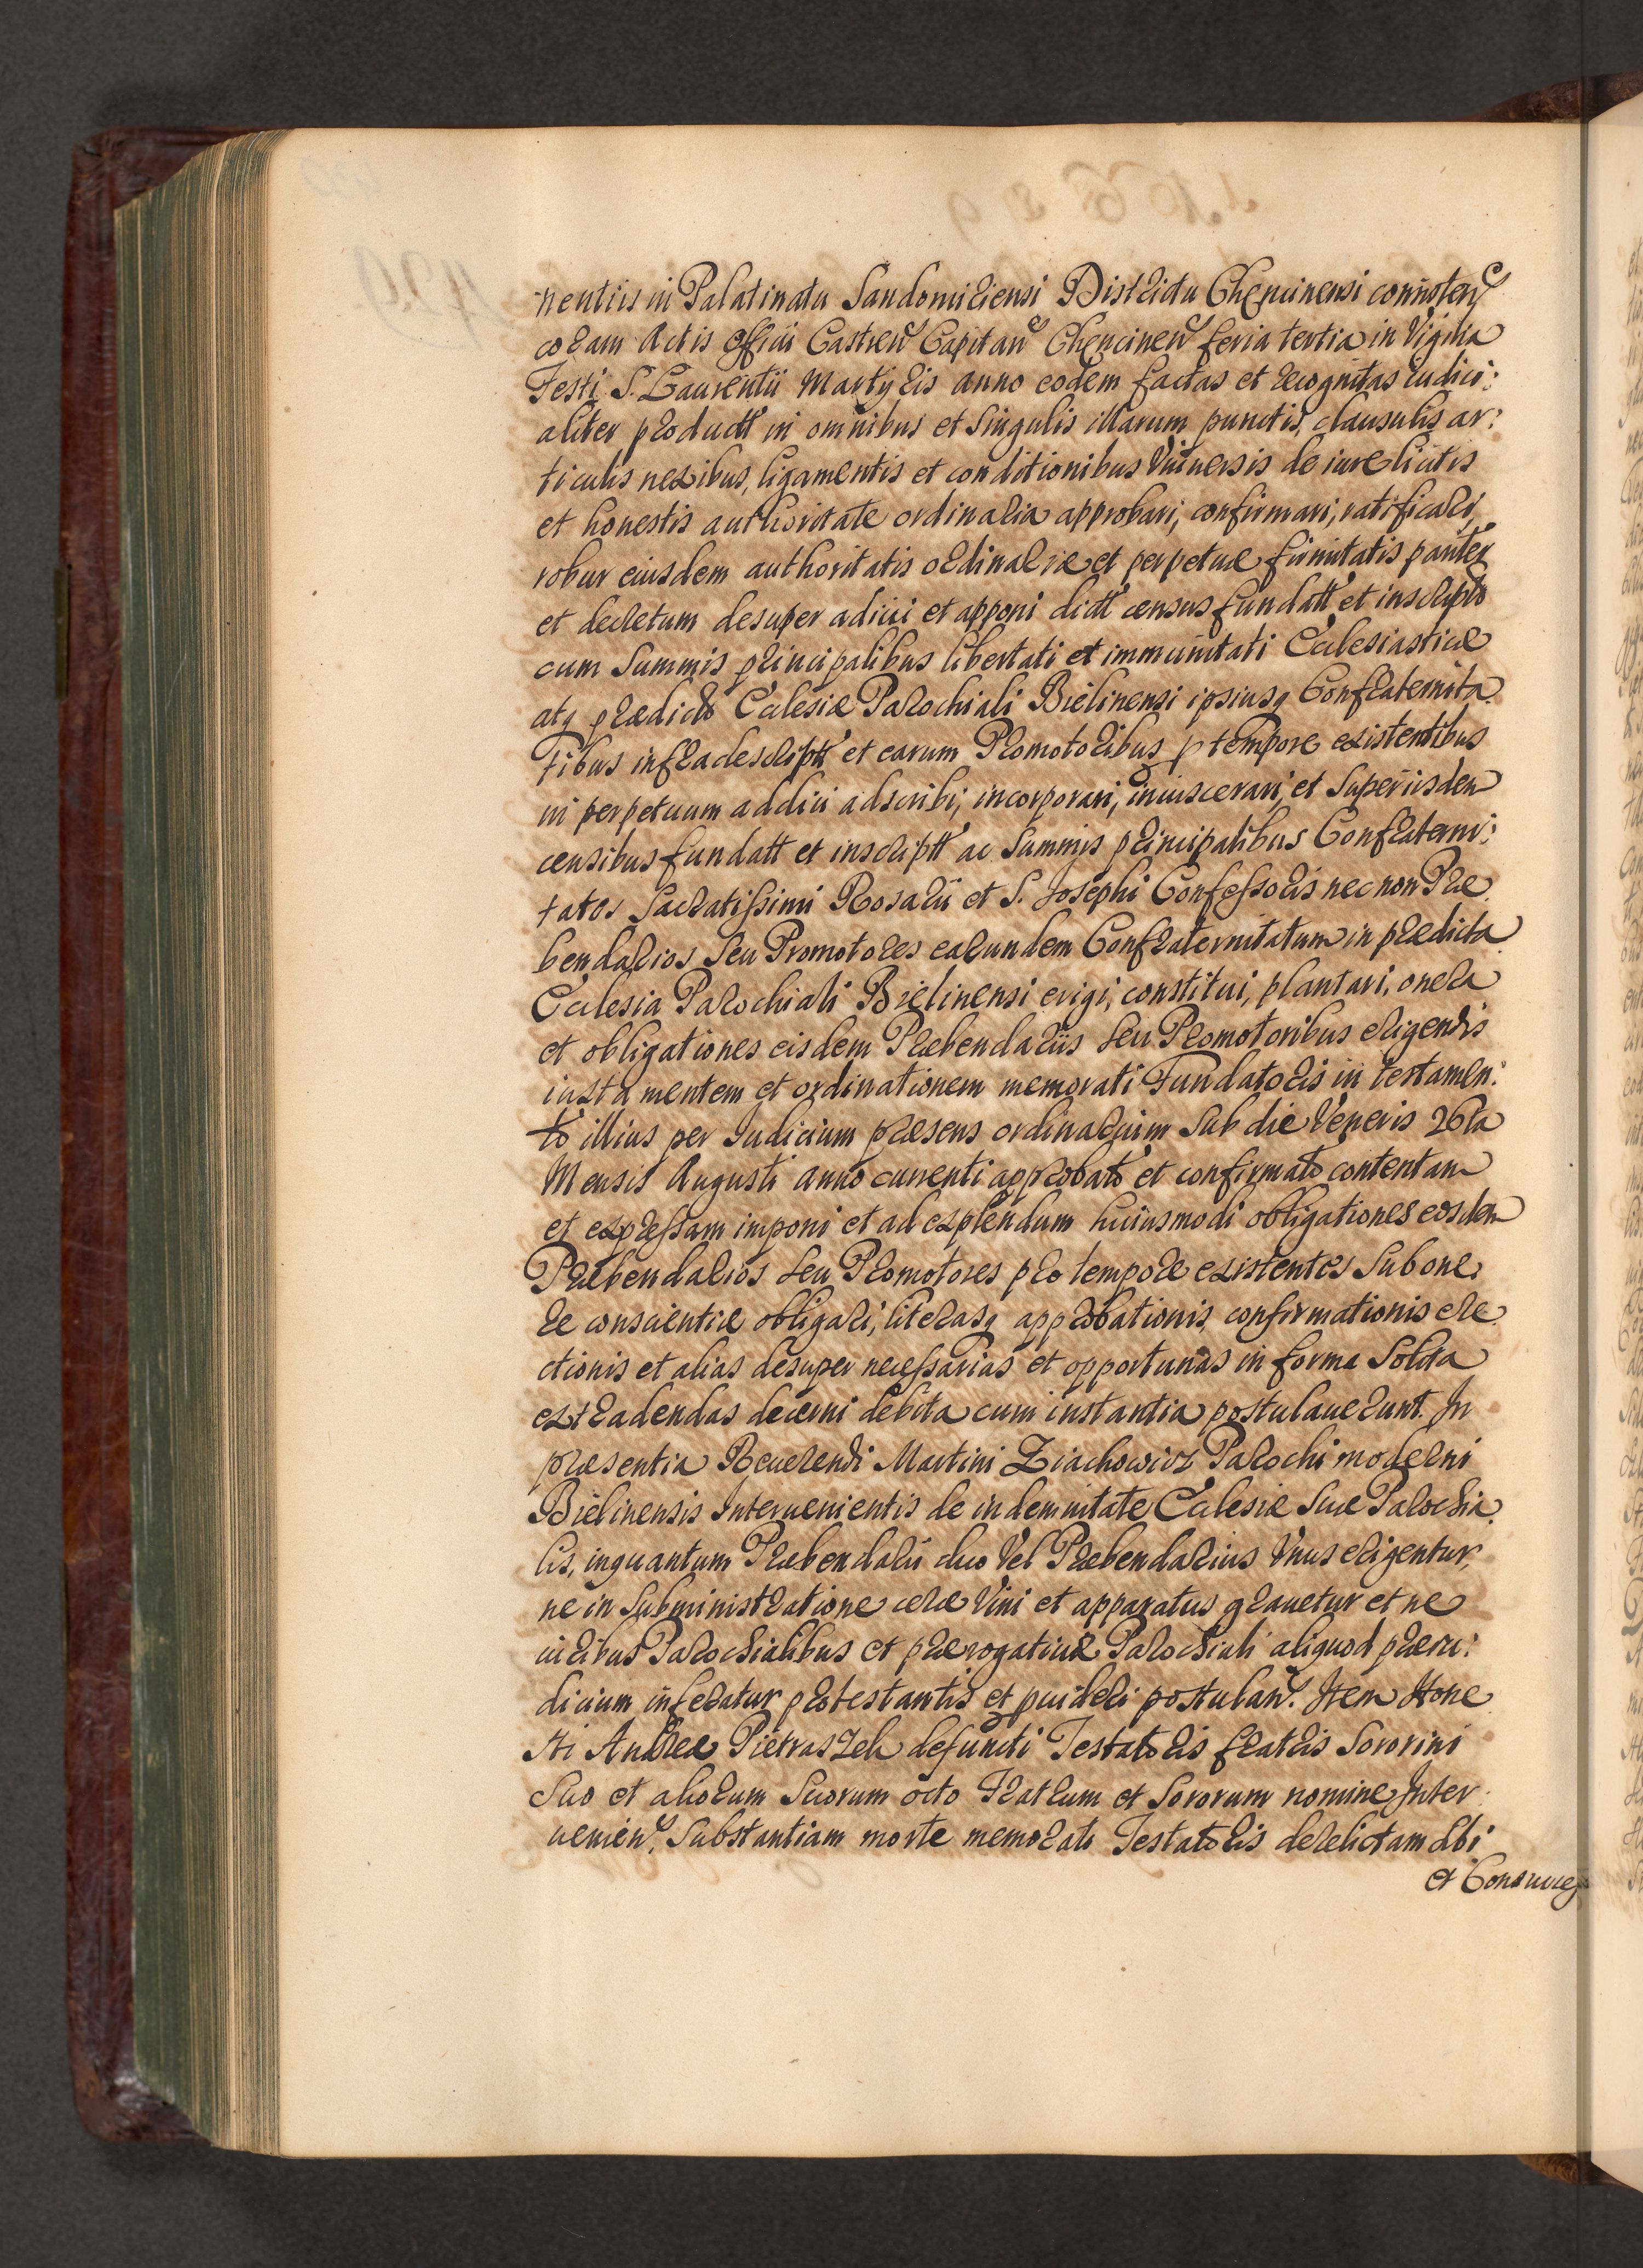 nentiis in Palatinatu Sandomiriensi Districtu Chencinensi commoten
coram Actis officii Castren Capitan Chencinen feria tertia in Vigilia
Festi S. Laurentii Martyris anno eodem factas et recognitas iudici:
aliter productt in omnibus et singulis illarum punctis, clausulis ar:
ticulis nexibus, ligamentis et conditionibus Vniuersis de iure licitis
et honestis authoritate ordinaria approbari, confirmari, ratificari,
robur eiusdem authoritatis ordinariæ et perpetuæ firmitatis pariter
et decretum desuper adiici et apponi dictt census fundatt et inscripto
cum Summis principalibus libertati et immunitati Ecclesiasticæ
atq prædictæ Ecclesiæ Parochiali Bielinensi ipsiusq Confraternita
tibus infradescriptt et earum Promotoribus p tempore existentibus
in perpetuum addici adscribi, incorporari, inuiscerari, et Super iisdem
censibus fundatt et inscriptt ac Summis principalibus Confraterni:
tates Sacratissimi Rosarii et S. Josephi Confessoris nec non Præ
bendarios Seu Promotores earundem Confraternitatum in prædicta
Ecclesia Parochiali Bielinensi erigi, constitui, plantari, onera
et obligationes eisdem Præbendariis Seu Promotoribus erigendis
iuxta mentem et ordinationem memorati Fundatoris in testamen:
to illius per Iudicium præsens ordinarium Sub die Veneris 26ta
Mensis Augusti anno currenti approbato et confirmato contentam
et expressam imponi et ad explendum huiusmodi obligationes eosdem
Præbendarios Seu Promotores pro tempore existentes Sub one:
re conscientiæ obligari, literasq approbationis, confirmationis ere
ctionis et alias desuper necessarias et opportunas in forma Solita
extradendas decerni debita cum instantia postulauerunt. In
præsentia Reuerendi Martini Ziachowicz Parochi moderni
Bielinensis Interuenientis de indemnitate Ecclesiæ Suæ Parochia
lis, inquantum Præbendarii duo Vel Præbendarius Vnus erigentur,
ne in Subministratione ceræ Vini et apparatus grauetur et ne
iuribus Parochialibus et prærogatiuæ Parochiali aliquod præiu:
dicium inferatur protestantis et puideri postulan. Item Hone
sti Andreæ Pietraszek defuncti Testatoris fratris Sororini
Suo et aliorum Suorum octo Fratrum et Sororum nomine Inter
uenien, Substantiam morte memorati Testatoris derelictam Sibi
et Consang